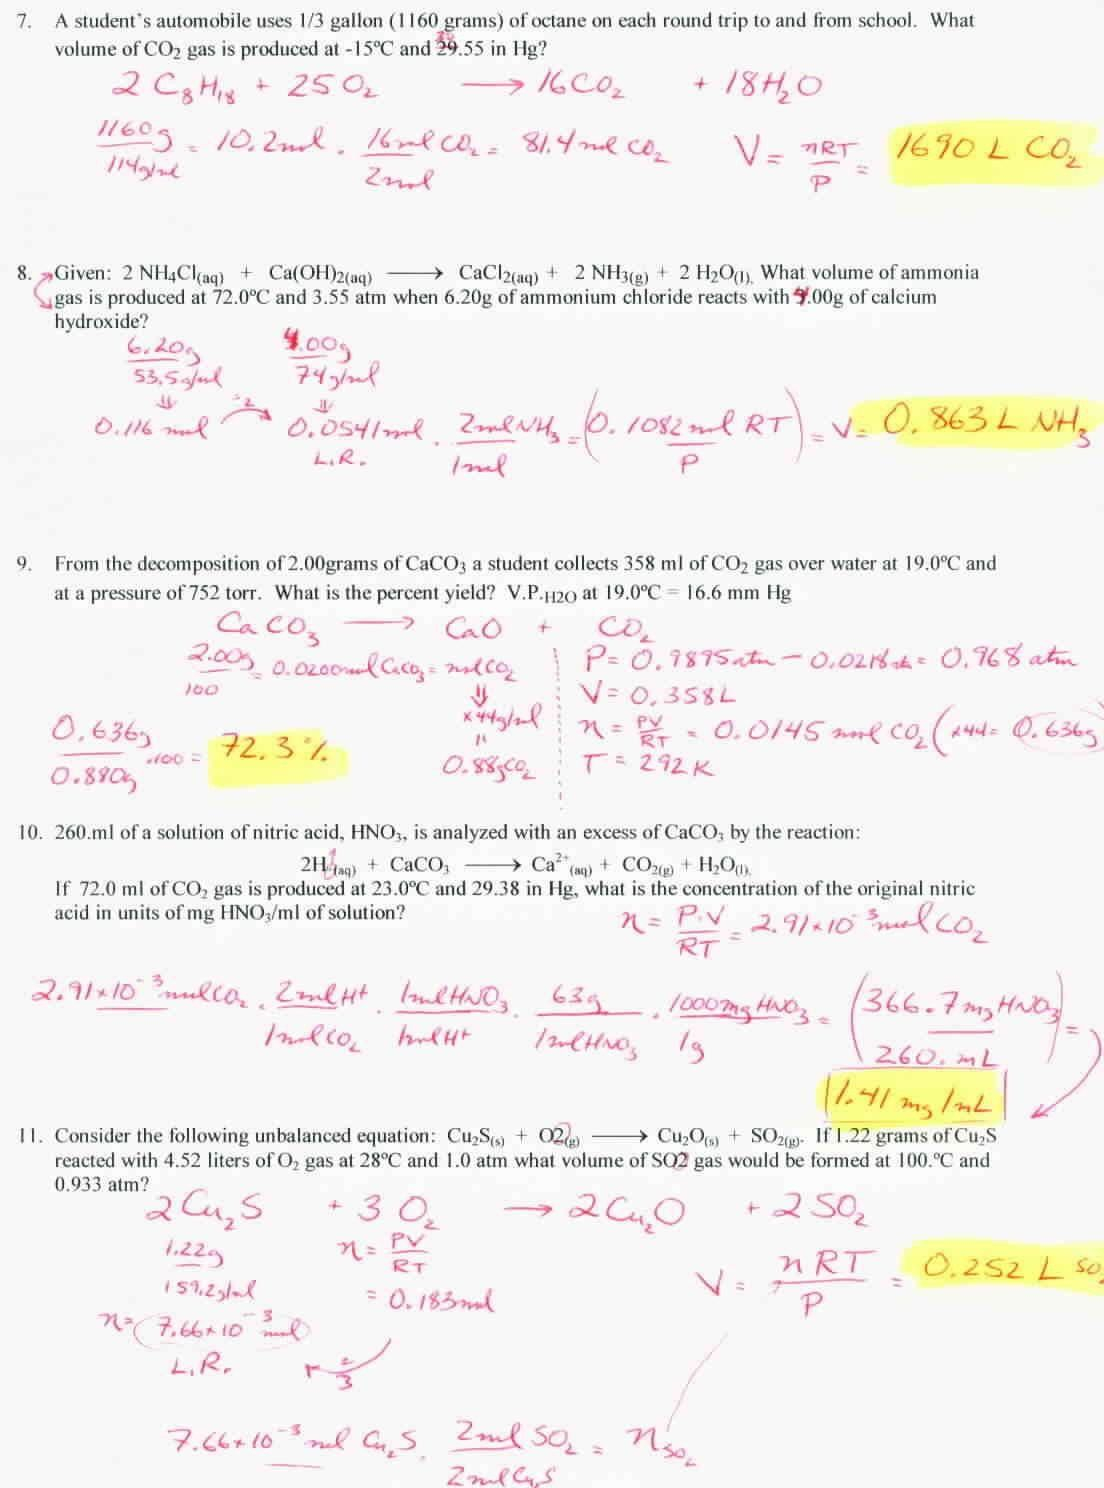 7. A student's automobile uses 1/3 gallon (1160 grams) of octane on each round trip to and from school. What
volume of CO₂ gas is produced at -15ºC and 29.55 in Hg?
2 C₈H₁₈ + 25 O₂ ⟶ 16CO₂ + 18H₂O
1160g / 114g/mol = 10.2mol · 16mol CO₂ / 2mol = 81.4 mol CO₂ V = nRT / P = 1690 L CO₂
8. Given: 2 NH₄Cl(aq) + Ca(OH)₂(aq) ⟶ CaCl₂(aq) + 2 NH₃(g) + 2 H₂O(l). What volume of ammonia
gas is produced at 72.0ºC and 3.55 atm when 6.20g of ammonium chloride reacts with 4.00g of calcium
hydroxide?
6.20g / 53.5g/mol 4.00g / 74g/mol
0.116 mol ÷2 0.0541mol · 2molNH₃ / 1mol = (0.1082mol RT / P) = V= 0.863 L NH₃
L.R.
9. From the decomposition of 2.00grams of CaCO₃ a student collects 358 ml of CO₂ gas over water at 19.0ºC and
at a pressure of 752 torr. What is the percent yield? V.P.H2O at 19.0ºC = 16.6 mm Hg
CaCO₃ ⟶ CaO + CO₂
2.00g / 100 = 0.0200molCaCO₃ = molCO₂
×44g/mol
0.88gCO₂
0.636g / 0.880g ·100 = 72.3%
P= 0.9895atm - 0.0218atm = 0.968 atm
V = 0.358L
n = PV / RT = 0.0145 mol CO₂ (×44= 0.636g)
T = 292K
10. 260.ml of a solution of nitric acid, HNO₃, is analyzed with an excess of CaCO₃ by the reaction:
2H⁺(aq) + CaCO₃ ⟶ Ca²⁺(aq) + CO₂(g) + H₂O(l).
If 72.0 ml of CO₂ gas is produced at 23.0ºC and 29.38 in Hg, what is the concentration of the original nitric
acid in units of mg HNO₃/ml of solution?
n = P.V / RT = 2.91×10⁻³mol CO₂
2.91×10⁻³molCO₂ · 2molH+ / 1molCO₂ · 1molHNO₃ / 1molH+ · 63g / 1molHNO₃ · 1000mg HNO₃ / 1g = (366.7mg HNO₃ / 260. mL) =
1.41 mg/mL
11. Consider the following unbalanced equation: Cu₂S(s) + O2(g) ⟶ Cu₂O(s) + SO₂(g). If 1.22 grams of Cu₂S
reacted with 4.52 liters of O₂ gas at 28ºC and 1.0 atm what volume of SO2 gas would be formed at 100.ºC and
0.933 atm?
2Cu₂S + 3 O₂ ⟶ 2Cu₂O + 2SO₂
1.22g / 159.2g/mol n = PV / RT
= 0.183mol
n= 7.66×10⁻³ mol
L.R. 2/3
V = nRT / P = 0.252 L SO₂
7.66×10⁻³ mol Cu₂S · 2mol SO₂ / 2molCu₂S = nSO₂